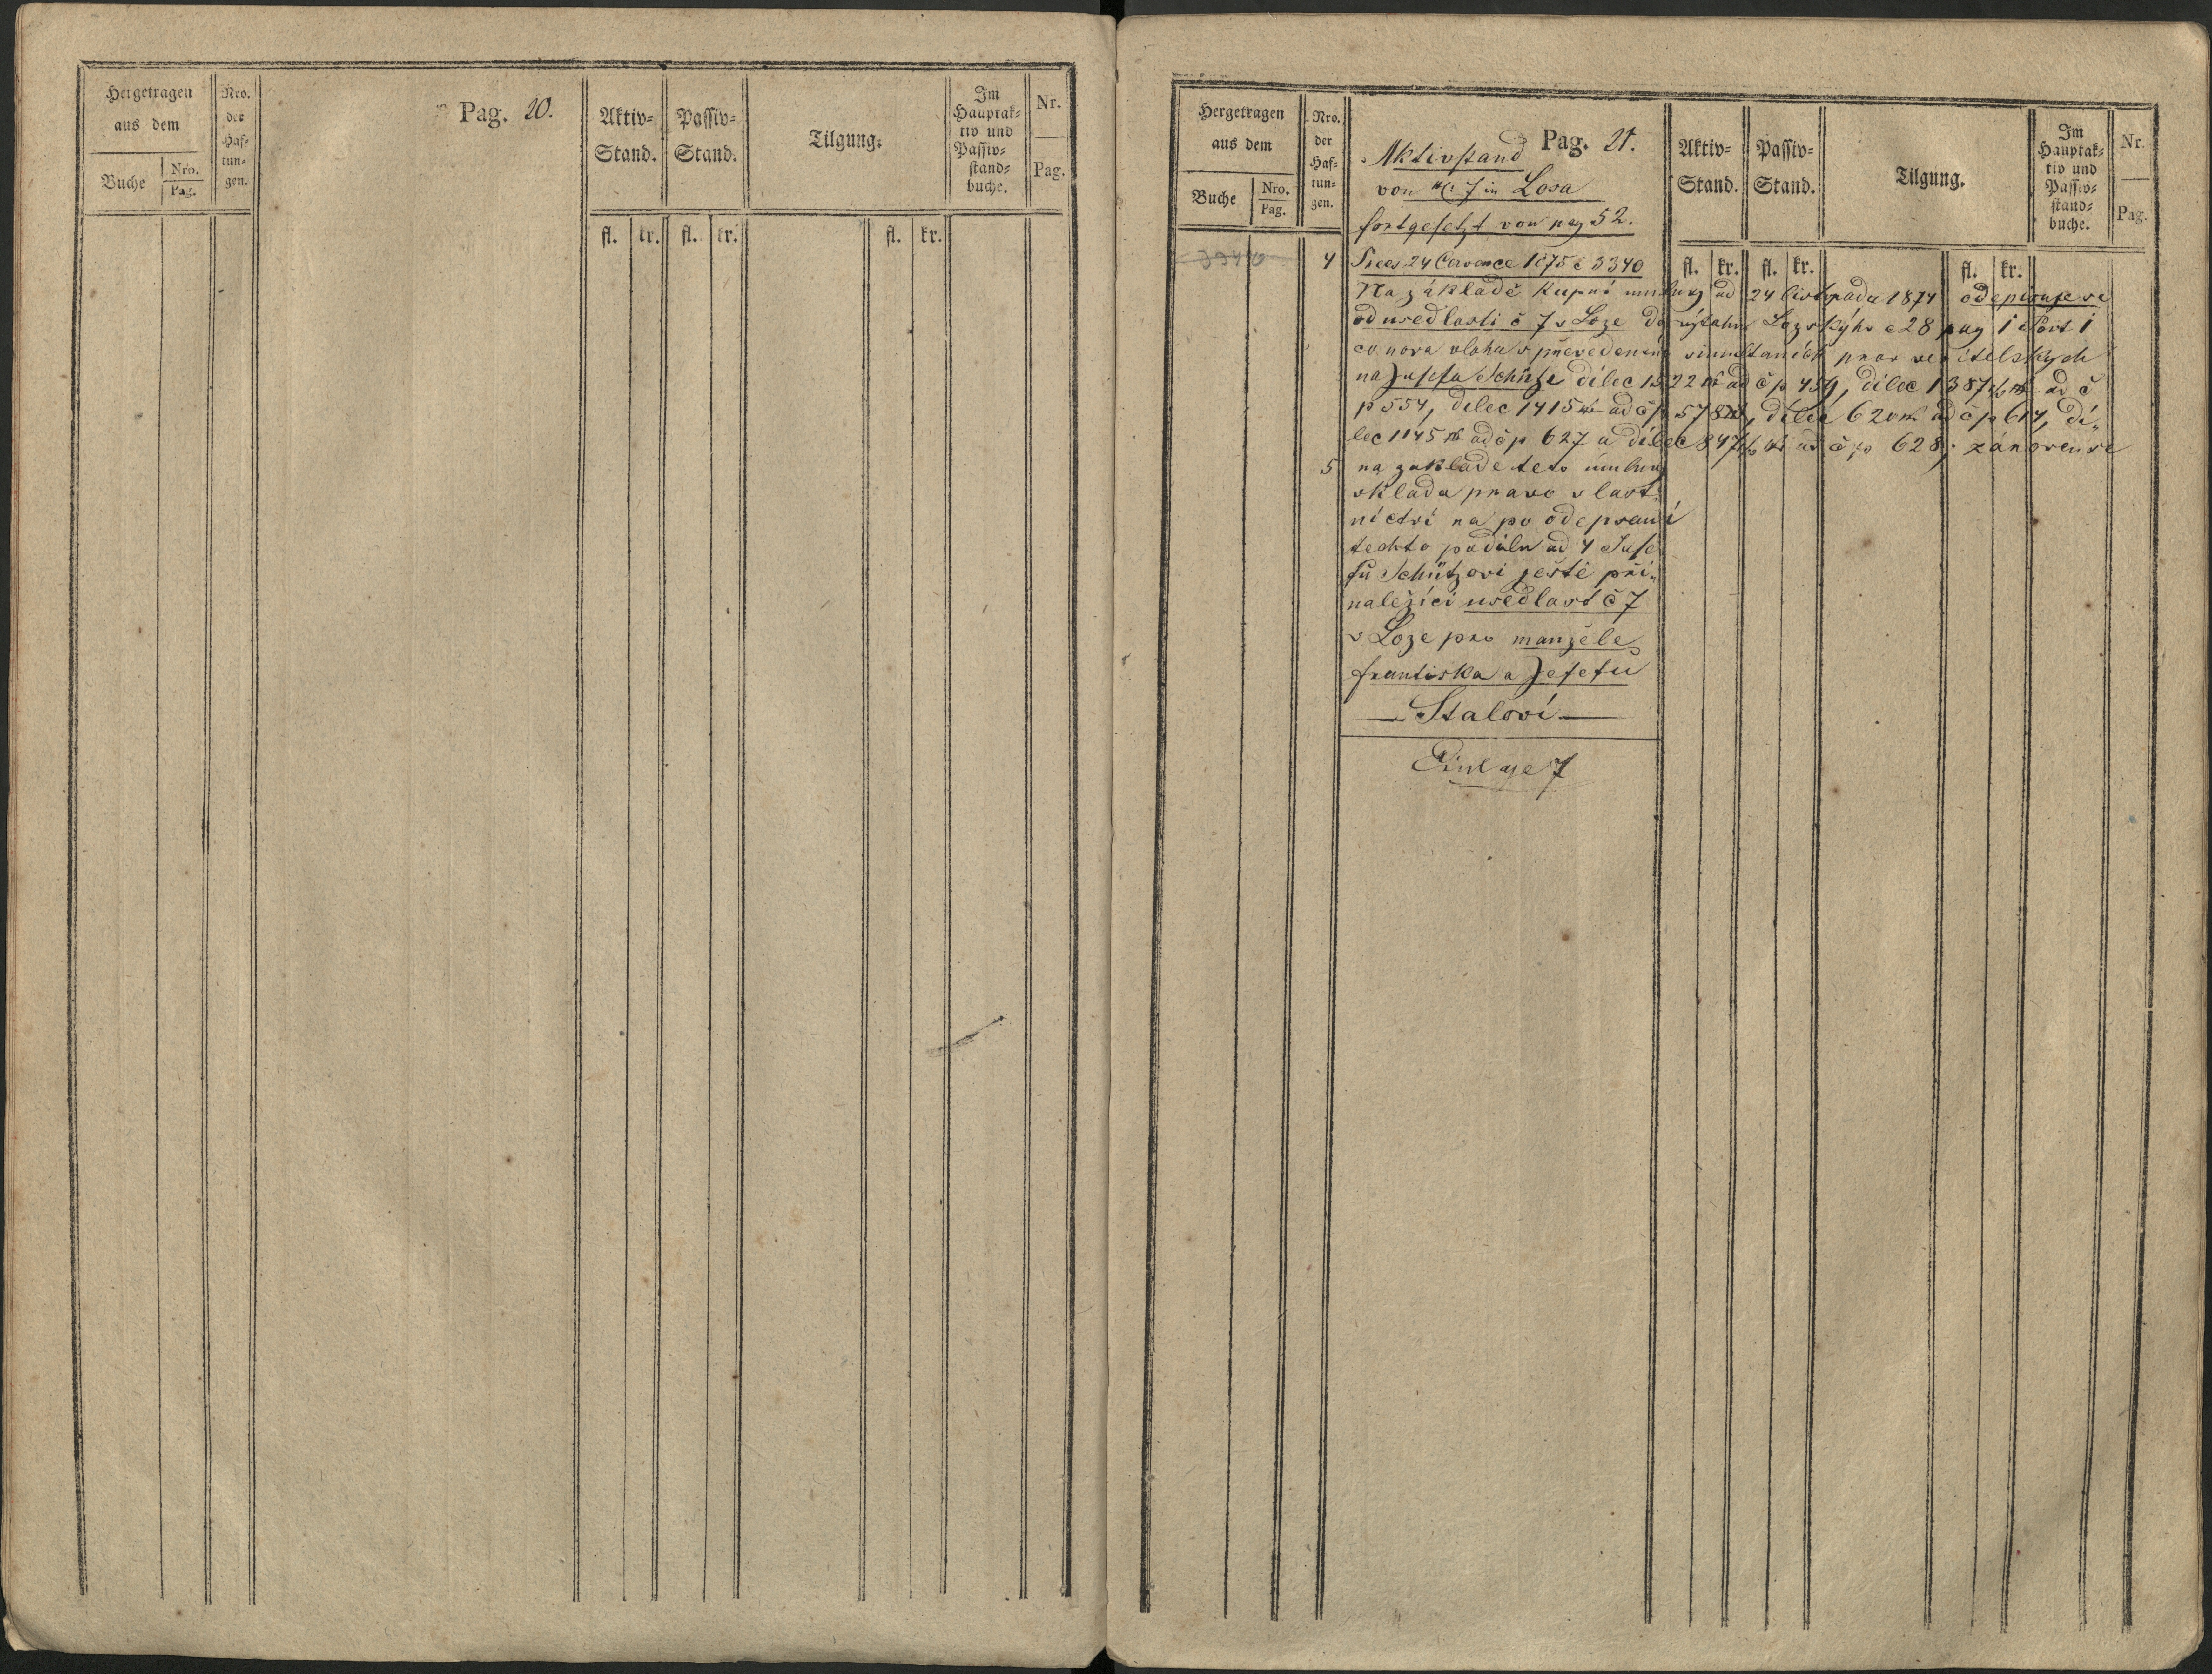 Hergetragen
aus dem
Buche
Nro.
Pag.
Nro.
der
Haf-
tun-
gen.
Pag. 20.
Aktiv-
Stand.
Passiv-
Stand.
Tilgung.
Im
Hauptak-
tiv und
Passiv-
stand-
buche.
Nr.
Pag.
fl. kr. fl. kr. fl. kr.
Hergetragen
aus dem
Buche
Nro.
Pag.
Nro.
der
Haf-
tun-
gen.
Pag. 21.
Aktivstand
von NC 7 in Losa
fortgesetzt von pag 52.
Aktiv-
Stand.
Passiv-
Stand.
Tilgung.
Im
Hauptak-
tiv und
Passiv-
stand-
buche.
Nr.
Pag.
fl. kr. fl. kr. fl. kr.
3340
4 Praes 24 Července 1875 č 3340
Na základě kupní umluvy od 24 listopadu 1874 odepisuje se
od usedlosti č 7 v Loze do výtahu Lozského č 28 pag 1 Post 1
co nova vloha s převedením simultaních prav veřitelských
na Josefa Schütze dílec 1522 ad č p 459, dílec 1387 ad č
p 554, dílec 1415 ad č p 578, dílec 620 ad č p 614, dí„
lec 1145 ad č p 627 a dílec 847 ad č p 628; zánoven se
5 na zakladě teto úmluvy
vklada pravo vlast„
nictví na po odepsaní
techto podílu ad 4 Jose
fu Schützovi ještě pří„
naležící usedlost č 7
v Loze pro manžele
Františka a Josefu
— Stalovi —
Einlage 7